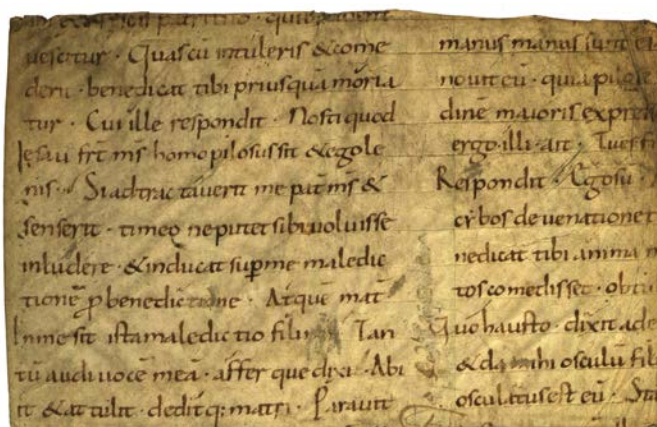 uescitur · Quascū intuleris & come
derit · benedicat tibi priusquā moria
tur · Cui ille respondit · Nosti quod
esau frt ms homo pilosus sit & ego le
nis · Si adtrectauerit me pat ms &
senserit · timeo ne putet sibi uoluisse
inludere · & inducat sup me maledic
tionē p benedictione · Atque mat
In me sit ista maledictio fili Tan
tū audi uocē meā · affer que dixi · Abi
it & attulit · dedit q; matri · Parauit
manus manus sunt
nouit eū · quia pilose
dinē maioris expre
ergo · illi · ait · Tu es
Respondit · Ego sū ·
cybos de uenatione
nedicat tibi anima
tos comedisset · obtu
Quo hausto · dixit ad e
& da mihi osculū fili
osculatus est eū ·